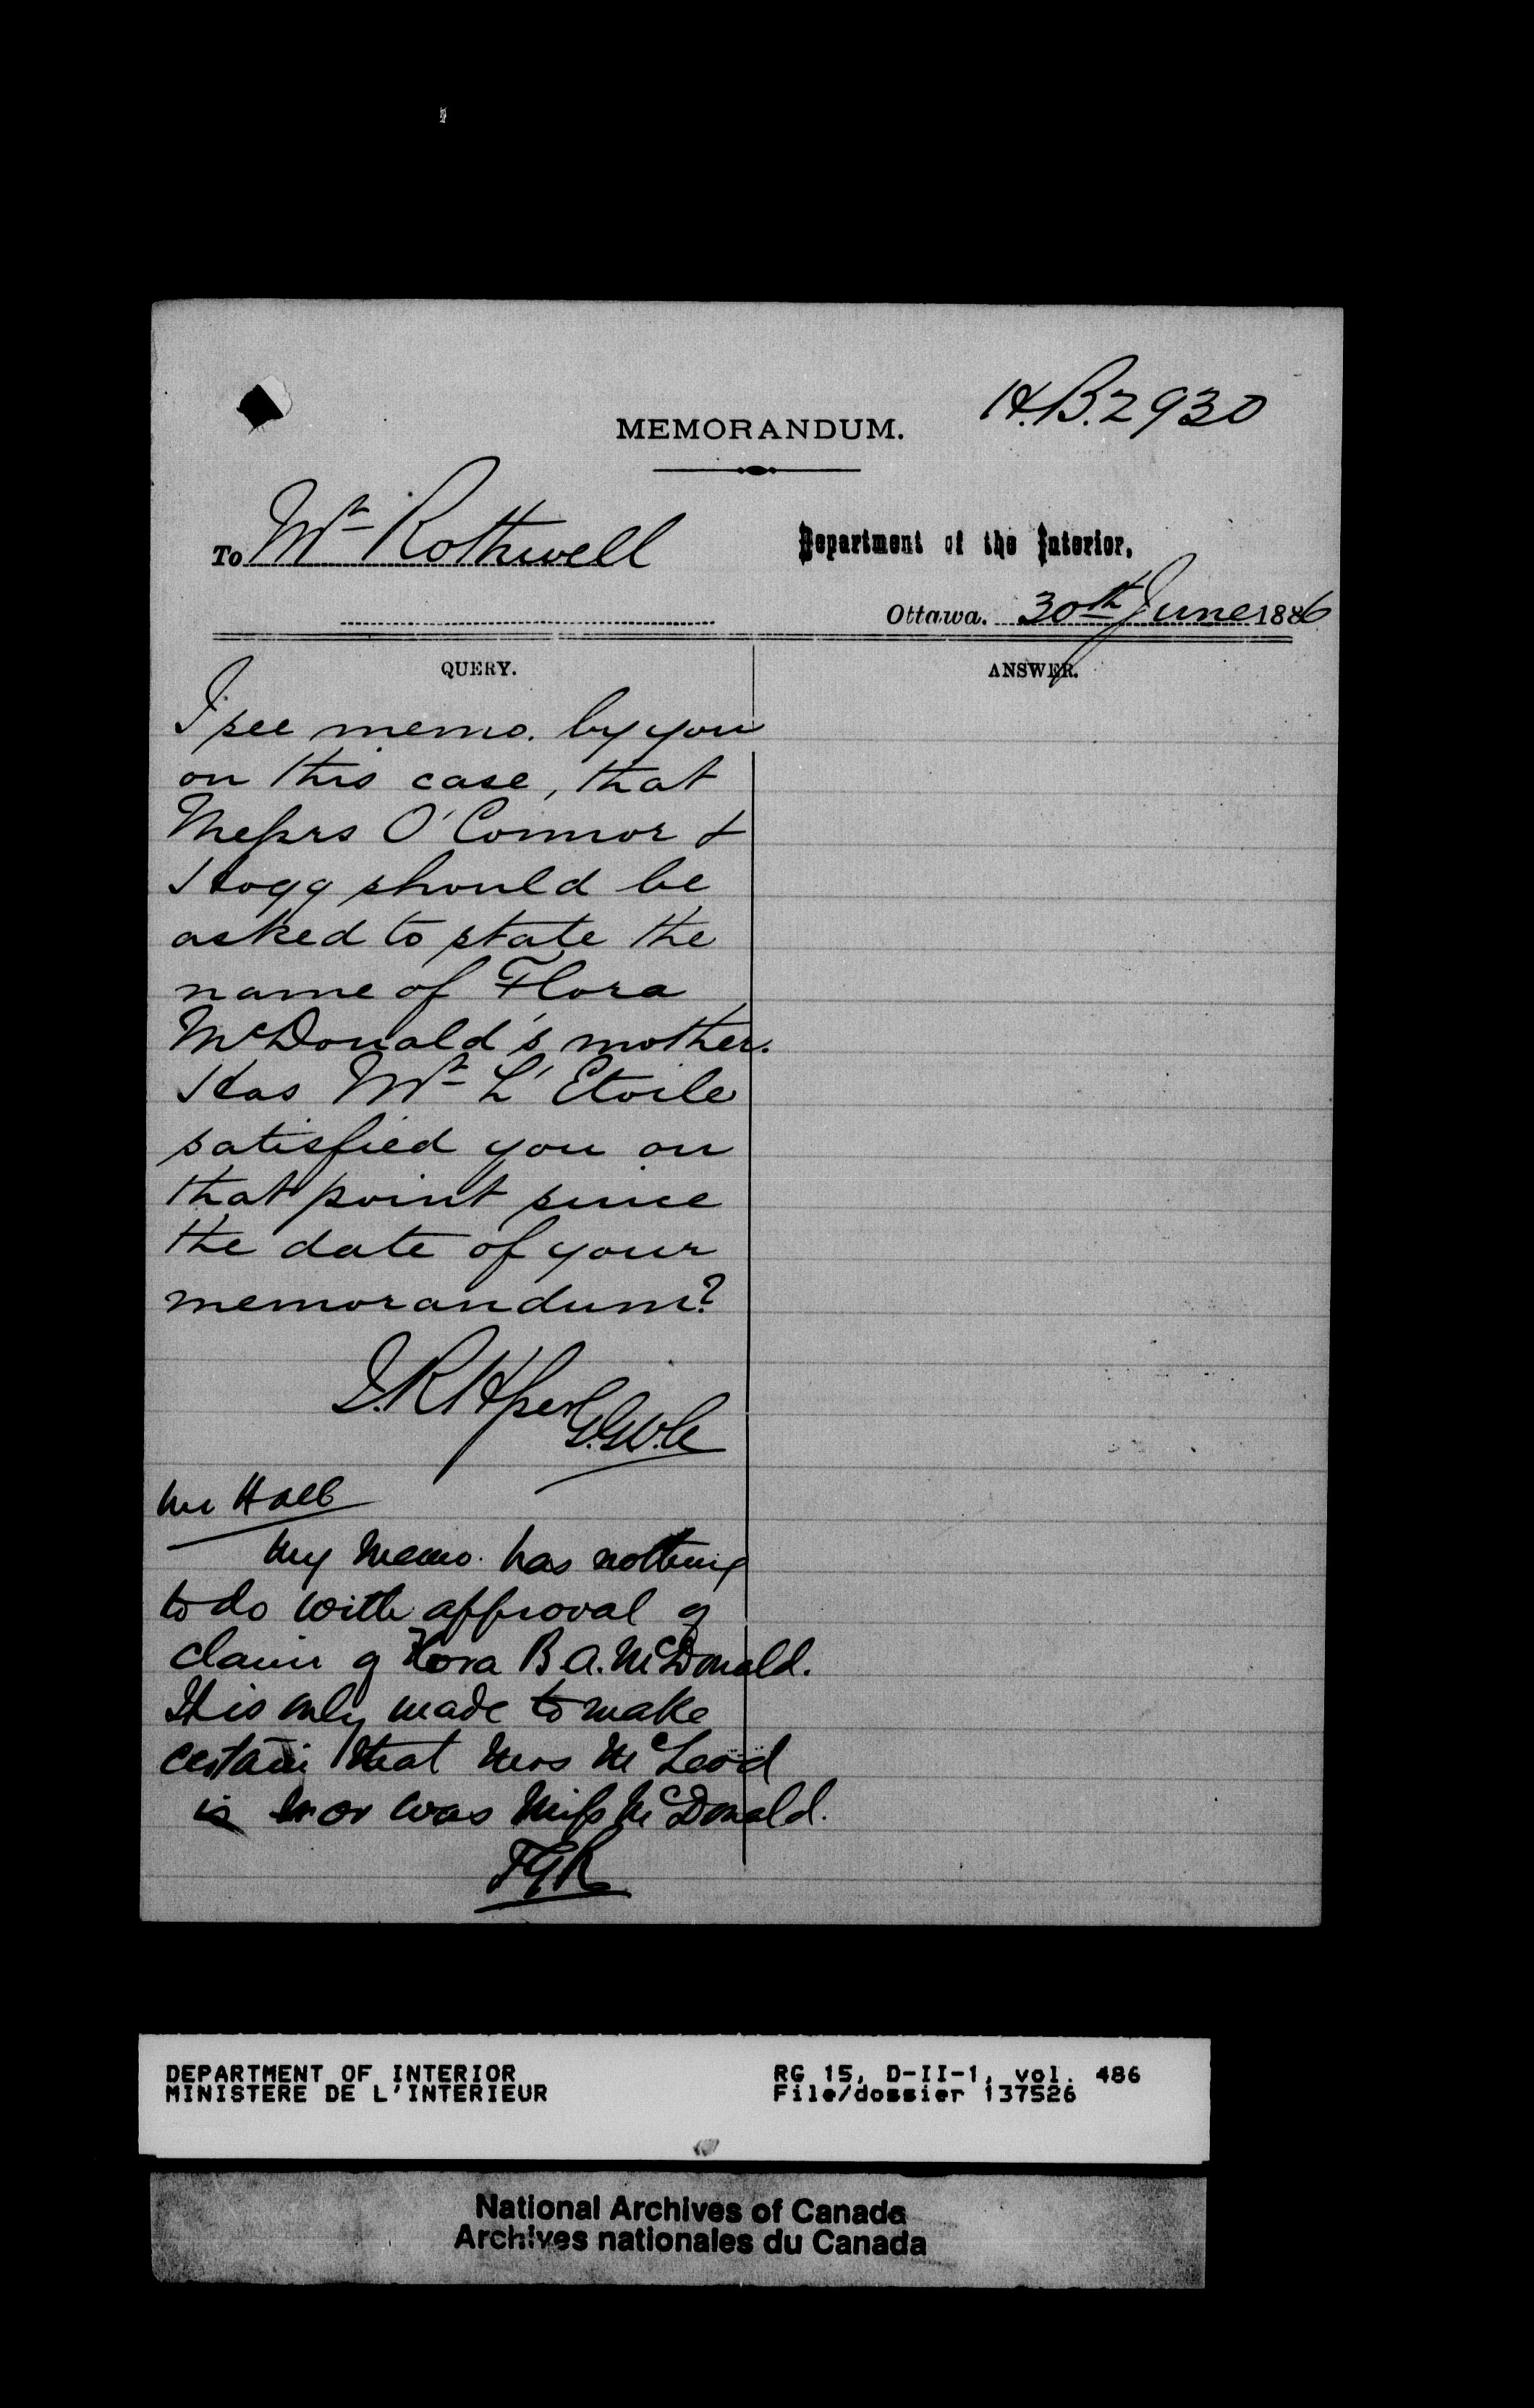 H.B.2930
MEMORANDUM.
To Mr Rothwell
Department of the Interior.
Ottawa. 30th June 1886
QUERY.
ANSWER.
I see memo. by you
on this case, that
Messrs O'Connor &
Hogg should be
asked to state the
name of Flora
McDonald's mother.
Has Mr L'Etoile
satisfied you on
that point since
the date of your
memorandum?
J.R.H per
Mr Hall
My Memo. has nothing
to do with approval of
claim of Flora B A. McDonald.
It is only made to make
certain that Mrs McLeod
is or was Miss McDonald.
FGR
DEPARTMENT OF INTERIOR
MINISTERE DE L'INTERIEUR
RG 15, D-II-1, vol. 486
File/dossier 137526
National Archives of Canada
Archives nationales du Canada